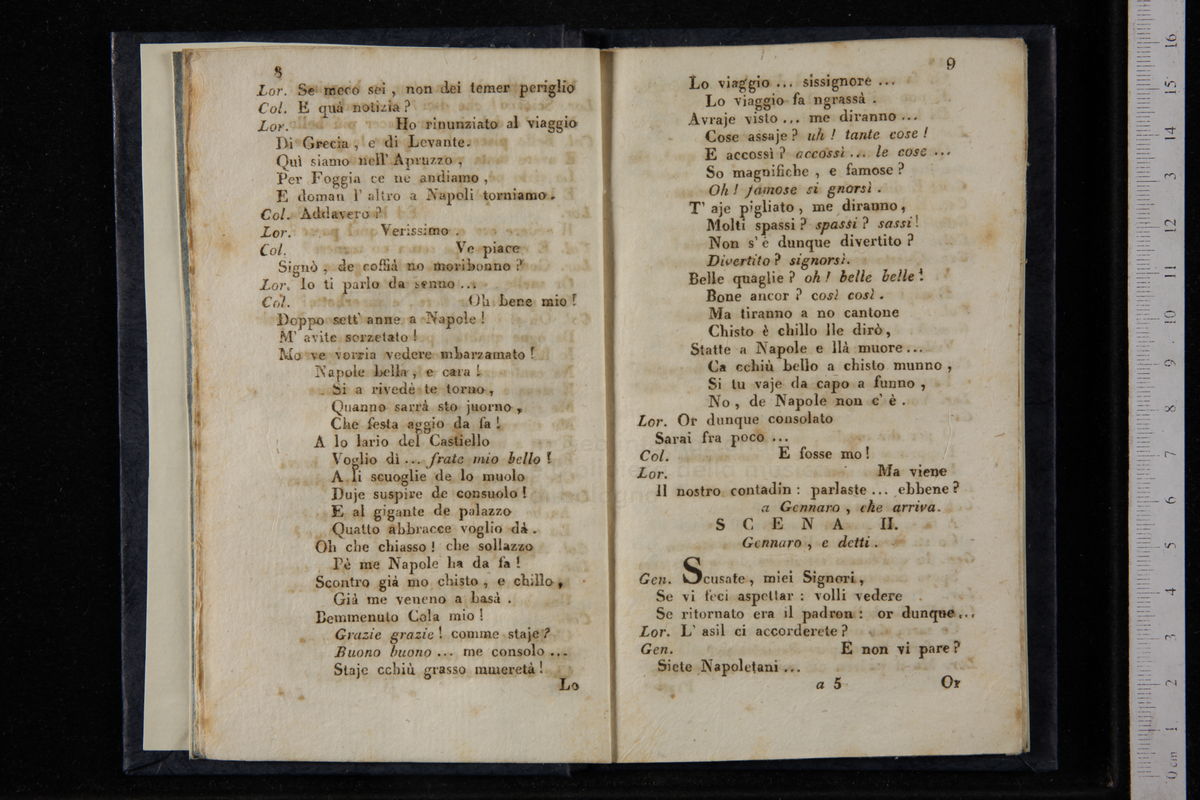 8
Lor. Se meco sei , non dei temer periglio
Col. E quà notizia ?
Lor. Ho rinunziato al viaggio
Di Grecia , e di Levante.
Quì siamo nell' Apruzzo ,
Per Foggia ce ne andiamo ,
E doman l' altro a Napoli torniamo .
Col. Addavero ?
Lor. Verissimo .
Col. Ve piace
Signò , de coffià no moribonno ?
Lor. Io ti parlo da senno ...
Col. Oh bene mio !
Doppo sett' anne a Napole !
M' avite sorzetato !
Mo ve vorria vedere mbarzamato !
Napole bella , e cara !
Si a rivedè te torno ,
Quanno sarrà sto juorno ,
Che festa aggio da fa !
A lo lario del Castiello
Voglio dì ... frate mio bello !
A li scuoglie de lo muolo
Duje suspire de consuolo !
E al gigante de palazzo
Quatto abbracce voglio dà .
Oh che chiasso ! che sollazzo
Pè me Napole ha da fa !
Scontro già mo chisto , e chillo ,
Già me veneno a basà .
Bemmenuto Cola mio !
Grazie grazie ! comme staje ?
Buono buono ... me consolo ...
Staje cchiù grasso mmeretà !
Lo
9
Lo viaggio ... sissignore ...
Lo viaggio fa ngrassà .
Avraje visto ... me diranno ...
Cose assaje ? uh ! tante cose !
E accossì ? accossì ... le cose ...
So magnifiche , e famose ?
Oh ! famose si gnorsì .
T' aje pigliato , me diranno ,
Molti spassi ? spassi ? sassi !
Non s' è dunque divertito ?
Divertito ? signorsì.
Belle quaglie ? oh ! belle belle !
Bone ancor ? così così .
Ma tiranno a no cantone
Chisto è chillo lle dirò ,
Statte a Napole e llà muore ...
Ca cchiù bello a chisto munno ,
Si tu vaje da capo a funno ,
No , de Napole non c' è .
Lor. Or dunque consolato
Sarai fra poco ...
Col. E fosse mo !
Lor. Ma viene
Il nostro contadin : parlaste ... ebbene ?
a Gennaro , che arriva.
SCENA II.
Gennaro , e detti .
Gen. Scusate , miei Signori ,
Se vi feci aspettar : volli vedere
Se ritornato era il padron : or dunque ...
Lor. L' asil ci accorderete ?
Gen. E non vi pare ?
Siete Napoletani ...
a 5 Or